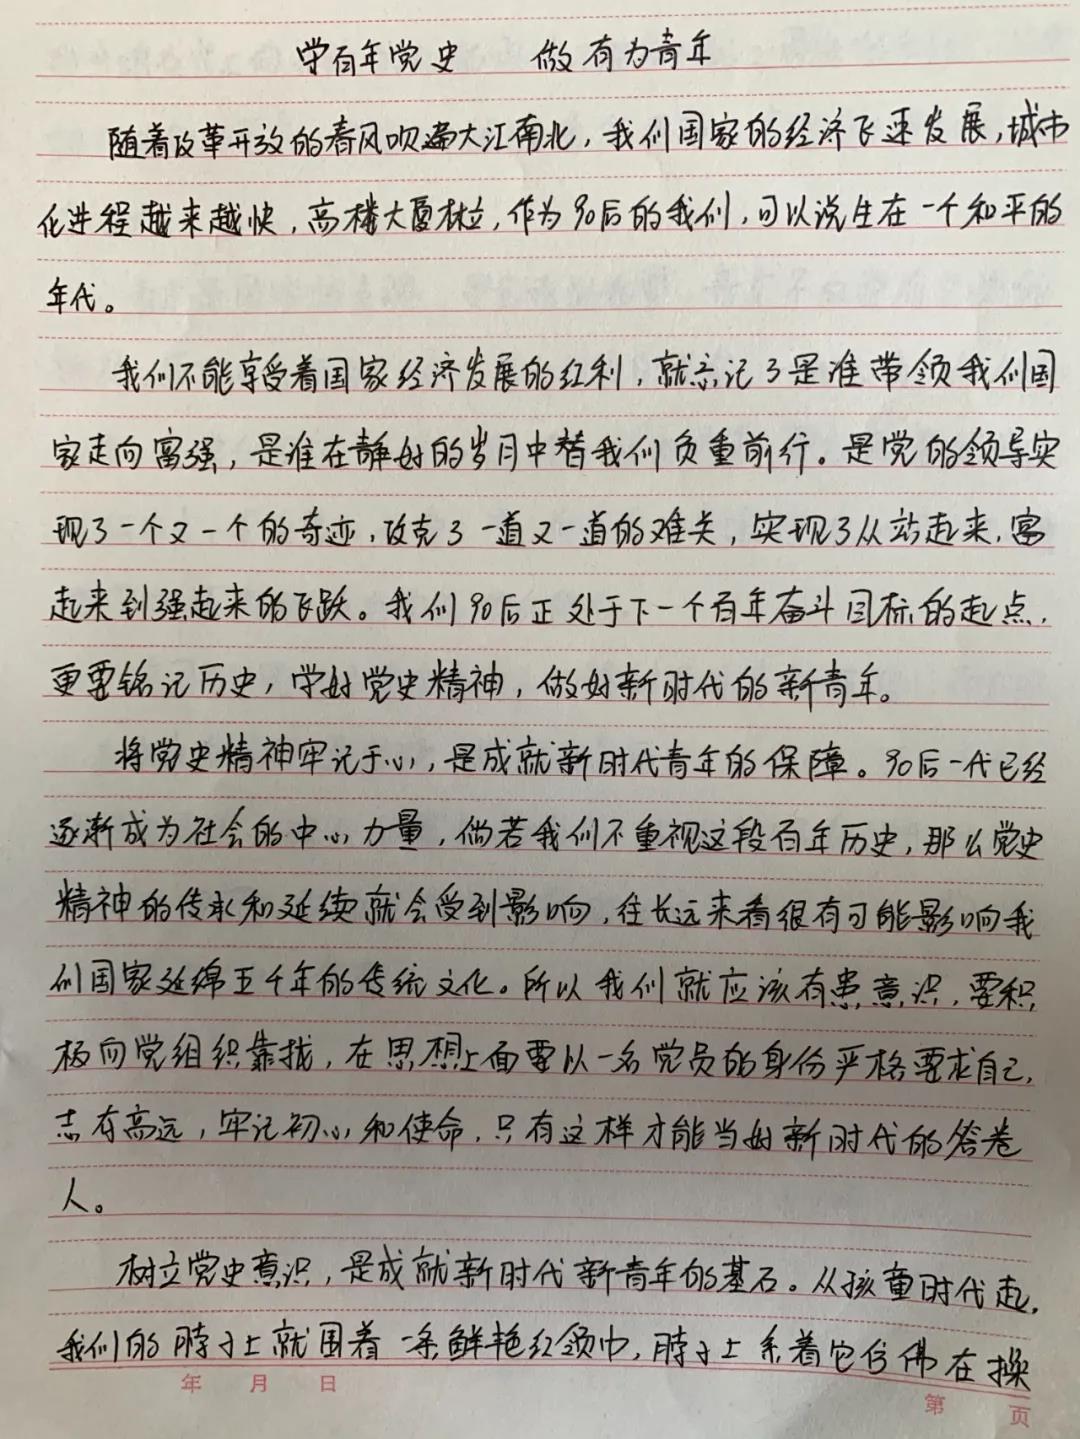 学百年党史 做有为青年
随着改革开放的春风吹遍大江南北，我们国家的经济飞速发展，城市
化进程越来越快，高楼大厦林立，作为90后的我们，可以说生在一个和平的
年代。
我们不能享受着国家经济发展的红利，就忘记了是谁带领我们国
家走向富强，是谁在静好的岁月中替我们负重前行。是党的领导实
现了一个又一个的奇迹，攻克了一道又一道的难关，实现了从站起来，富
起来到强起来的飞跃。我们90后正处于下一个百年奋斗目标的起点，
更要铭记历史，学好党史精神，做好新时代的新青年。
将党史精神牢记于心，是成就新时代青年的保障。90后一代已经
逐渐成为社会的中心力量，倘若我们不重视这段百年历史，那么党史
精神的传承和延续就会受到影响，往长远来看很有可能影响我
们国家延绵五千年的传统文化。所以我们就应该有患意识，要积
极向党组织靠拢，在思想上面要以一名党员的身份严格要求自己，
志有高远，牢记初心和使命，只有这样才能当好新时代的答卷
人。
树立党史意识，是成就新时代新青年的基石。从孩童时代起，
我们的脖子上就围着一条鲜艳红领巾，脖子上系着它仿佛在操
年 月 日
第 页